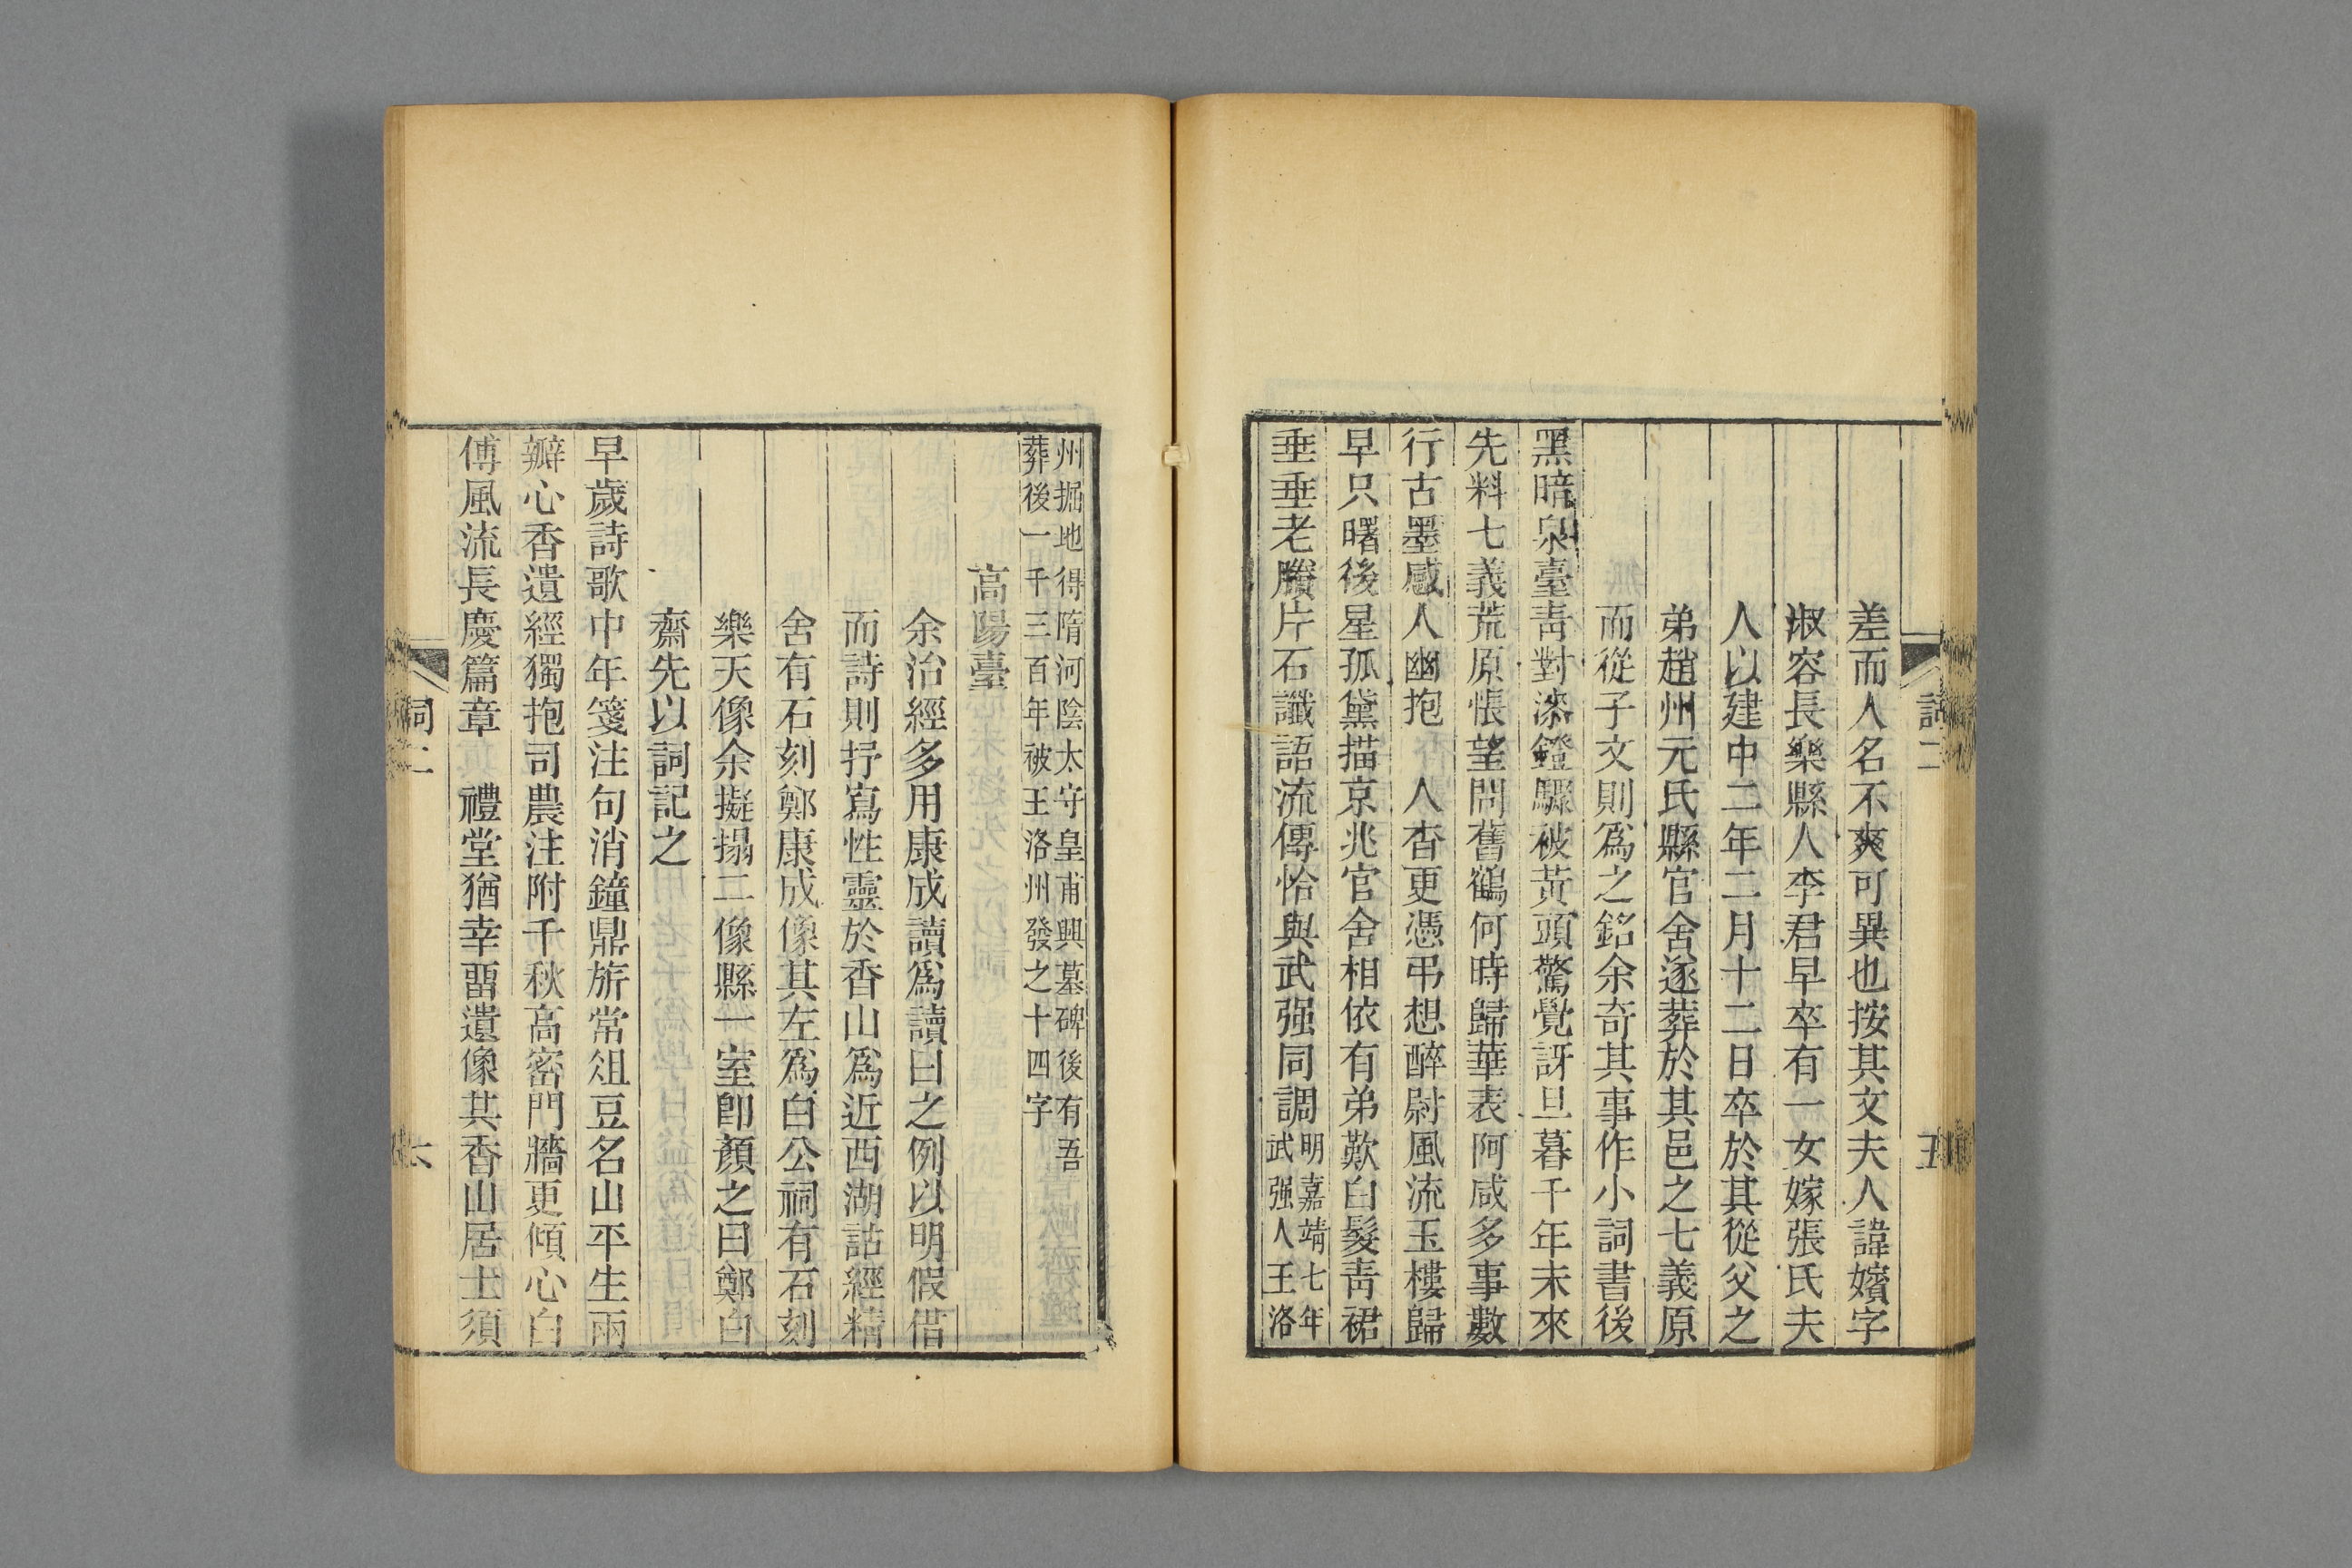 詞二
五
差而人名不爽可異也按其文夫人諱嬪字
淑容長樂縣人李君早卒有一女嫁張氏夫
人以建中二年二月十二日卒於其從父之
弟趙州元氏縣官舍逐葬於其邑之七義原
而從子文則爲之銘余奇其事作小詞書後
黑暗泉臺靑對漆鐙驟被黃頭驚覺訝旦暮千年未來
先料七義荒原悵望問舊鶴何時歸華表阿咸多事數
行古墨感人幽抱　人杳更憑弔想醉尉風流玉樓歸
早只曙後星孤黛描京兆官舍相依有弟歎白髮靑裙
垂垂老賸片石讖語流傳恰與武强同調明嘉靖七年
武强人王洛
州掘地得隋河陰太守皇甫興墓碑後有吾
葬後一千三百年被王洛州發之十四字
高陽臺
余治經多用康成讀爲讀曰之例以明假借
而詩則抒寫性靈於香山爲近西湖詁經精
舍有石刻鄭康成像其左爲白公祠有石刻
樂天像余擬搨二像縣一室卽顏之曰鄭白
齋先以詞記之
早歲詩歌中年箋注句消鐘鼎旂常俎豆名山平生兩
瓣心香遺經獨抱司農注附千秋高密門牆更傾心白
傅風流長慶篇章　禮堂猶幸畱遺像共香山居士須
詞二
六